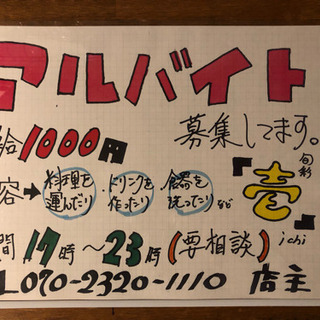 アルバイト
給1000円 募集してます。
容→料理を運んだり、ドリンクを作ったり、食器を洗ったりなど
旬彩
『壱』
ichi
間 17時〜23時(要相談)
070-2320-1110 店主